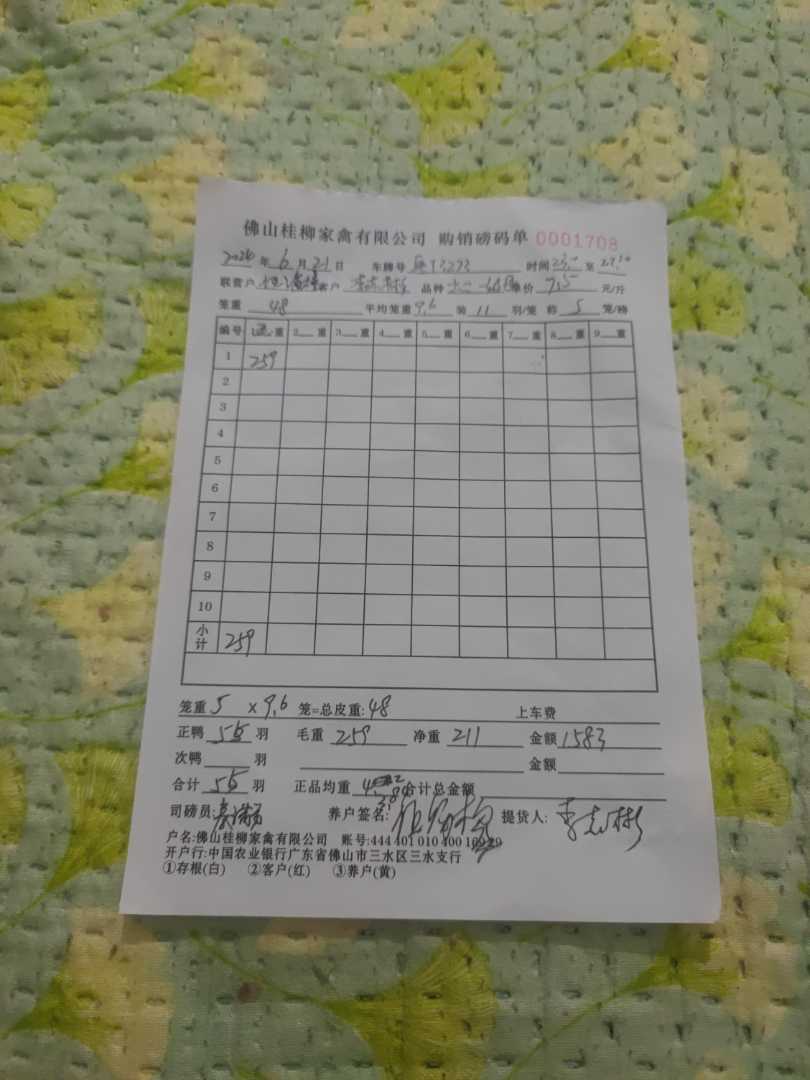 佛山桂柳家禽有限公司 购销磅码单 0001708
年 6 月 21 日 车牌号 时间 至
联营户 客户 品种 单价 7.5 元/斤
笼重 48 平均笼重 9.6 装 11 羽/笼 称 5 笼/磅
编号 1 重 2 重 3 重 4 重 5 重 6 重 7 重 8 重 9 重
1 259
2
3
4
5
6
7
8
9
10
小计 259
笼重 5 × 9.6 笼=总皮重: 48 上车费
正鸭 55 羽 毛重 259 净重 211 金额 1583
次鸭 羽 金额
合计 55 羽 正品均重 合计总金额
司磅员: 养户签名: 提货人: 李志彬
户名:佛山桂柳家禽有限公司 账号:444 401 010 400
开户行:中国农业银行广东省佛山市三水区三水支行
①存根(白) ②客户(红) ③养户(黄)